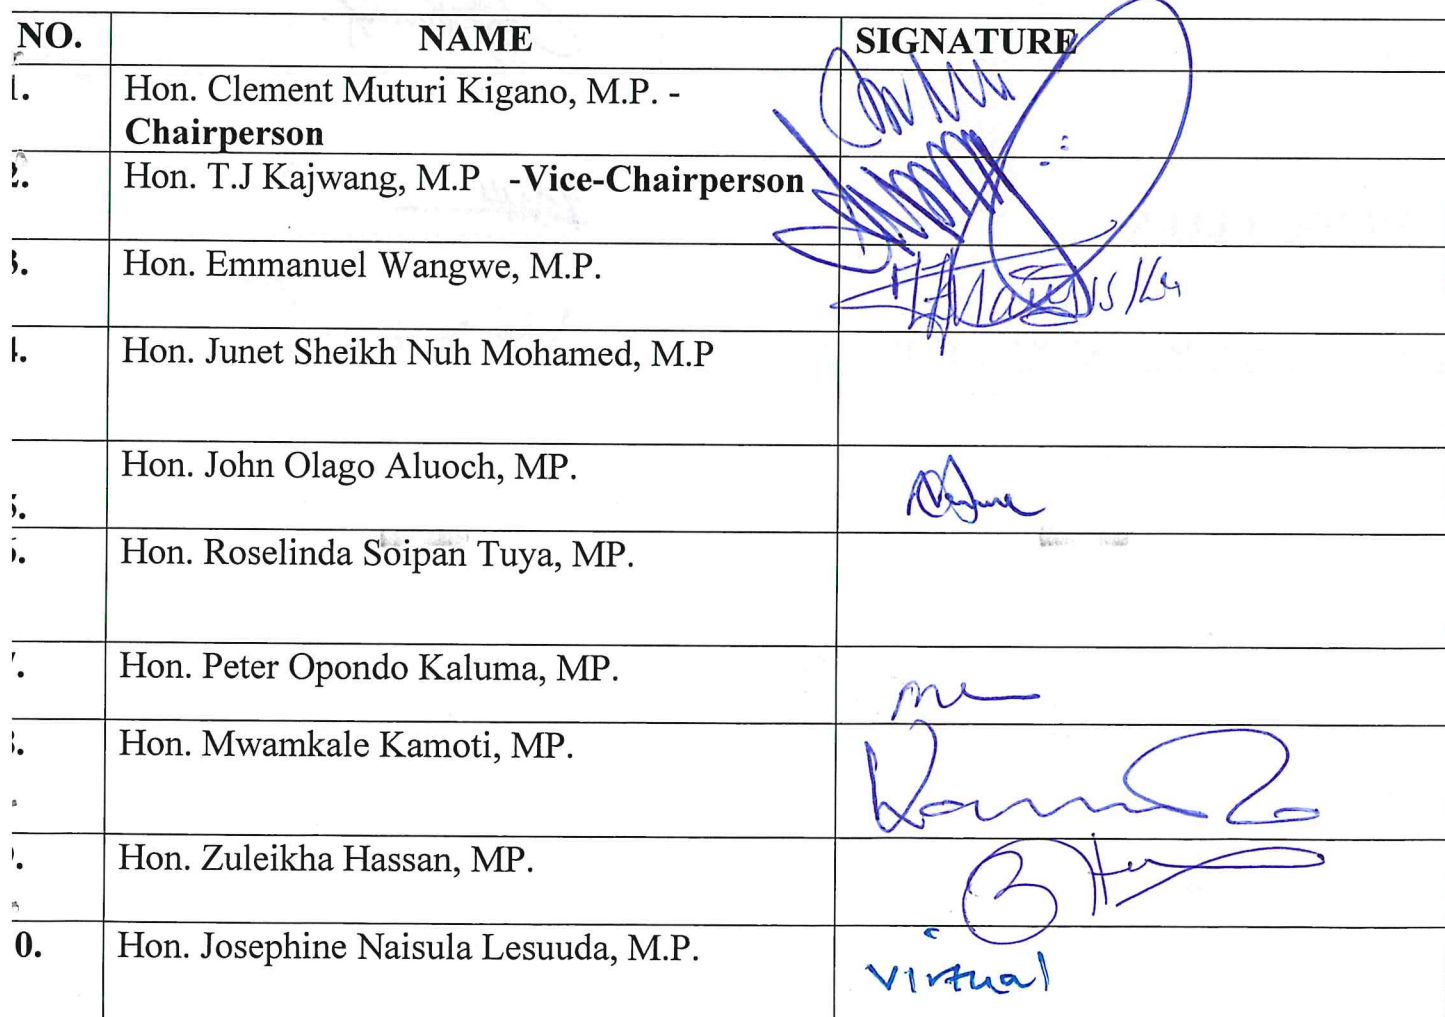 NO. NAME SIGNATURE
1. Hon. Clement Muturi Kigano, M.P. -
Chairperson
2. Hon. T.J Kajwang, M.P -Vice-Chairperson
3. Hon. Emmanuel Wangwe, M.P.
4. Hon. Junet Sheikh Nuh Mohamed, M.P
Hon. John Olago Aluoch, MP.
5.
6. Hon. Roselinda Soipan Tuya, MP.
7. Hon. Peter Opondo Kaluma, MP.
8. Hon. Mwamkale Kamoti, MP.
9. Hon. Zuleikha Hassan, MP.
0. Hon. Josephine Naisula Lesuuda, M.P.
virtual